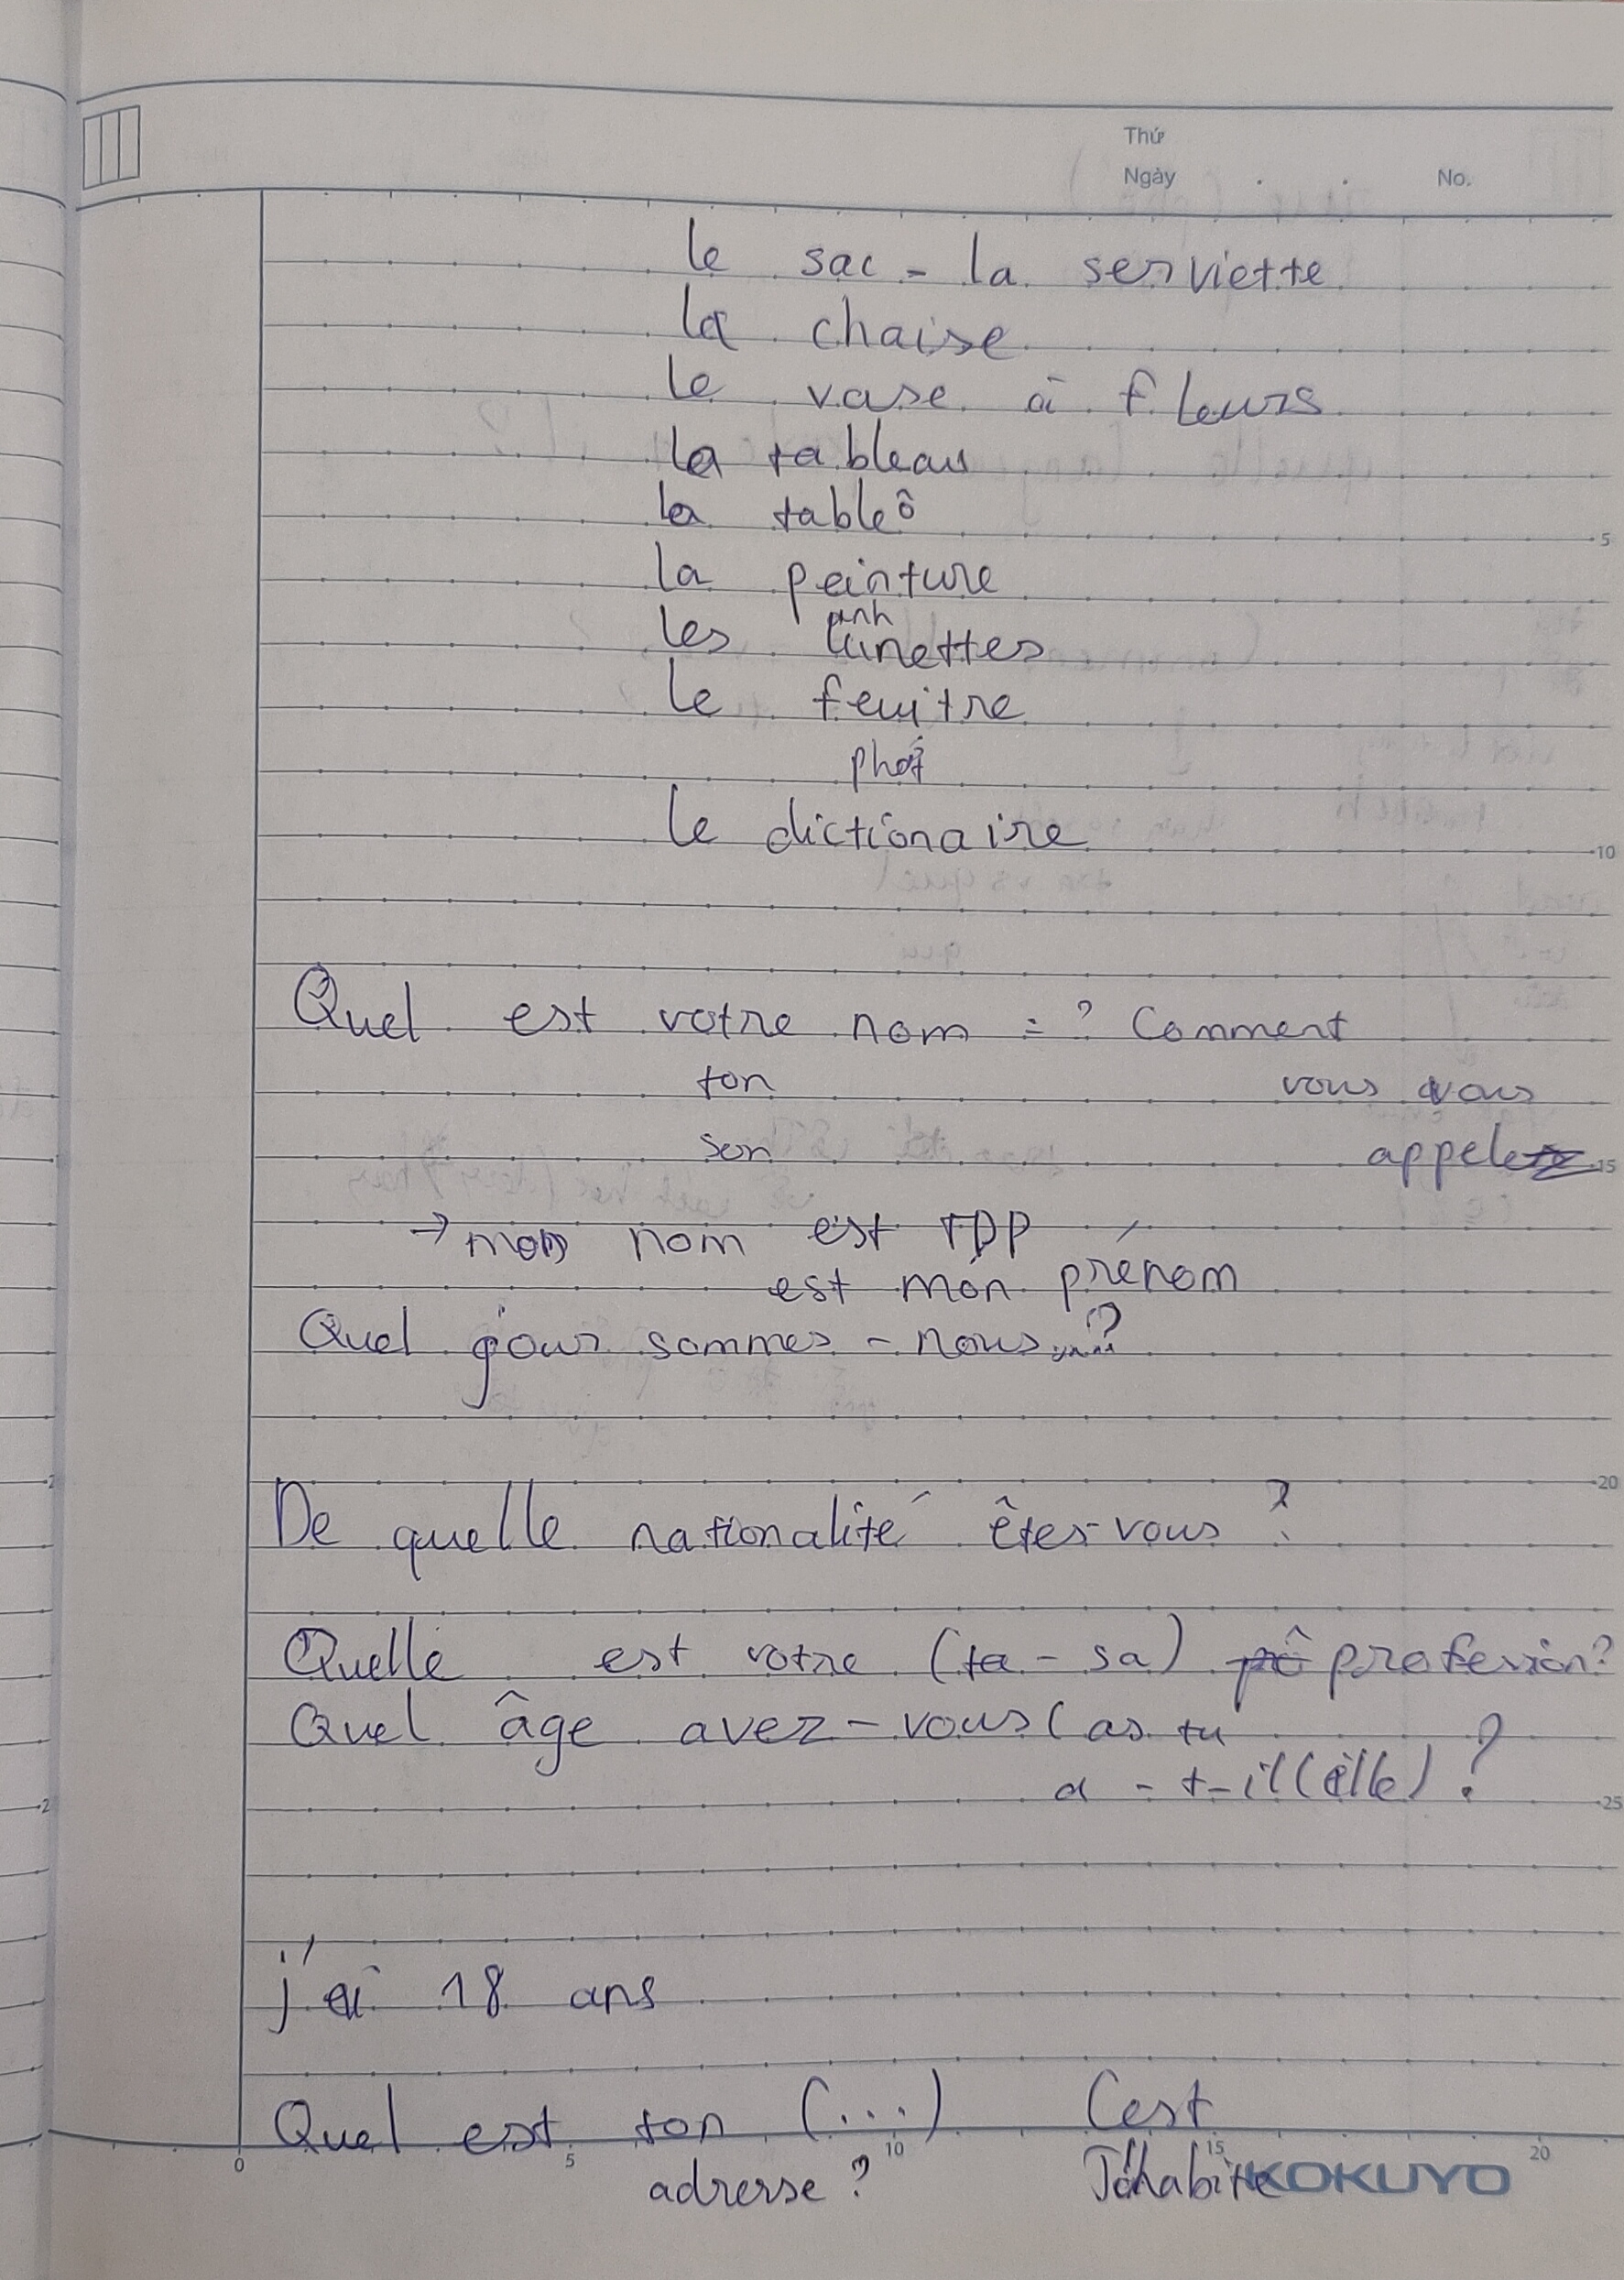 Thứ
Ngày . . No.
le sac - la serviette
la chaise
le vase à fleurs
la tableau
la table ô
la peinture
anh
les lunettes
le
phớt
le dictionaire
Quel est votre nom = ? Comment
ton vous vous
son appelez
→ mon nom est TDP
est món prénom
Quel jour sommes - nous ?
De quelle nationalité êtes-vous ?
Quelle est votre (ta - sa) profession?
Quel âge avez - vous ( as tu
a - t - il (elle) ?
j'ai 18 ans
Quel est ton (...) C'est
adresse ? J'habite
5
10
15
20
25
0 5 10 15 20
KOKUYO